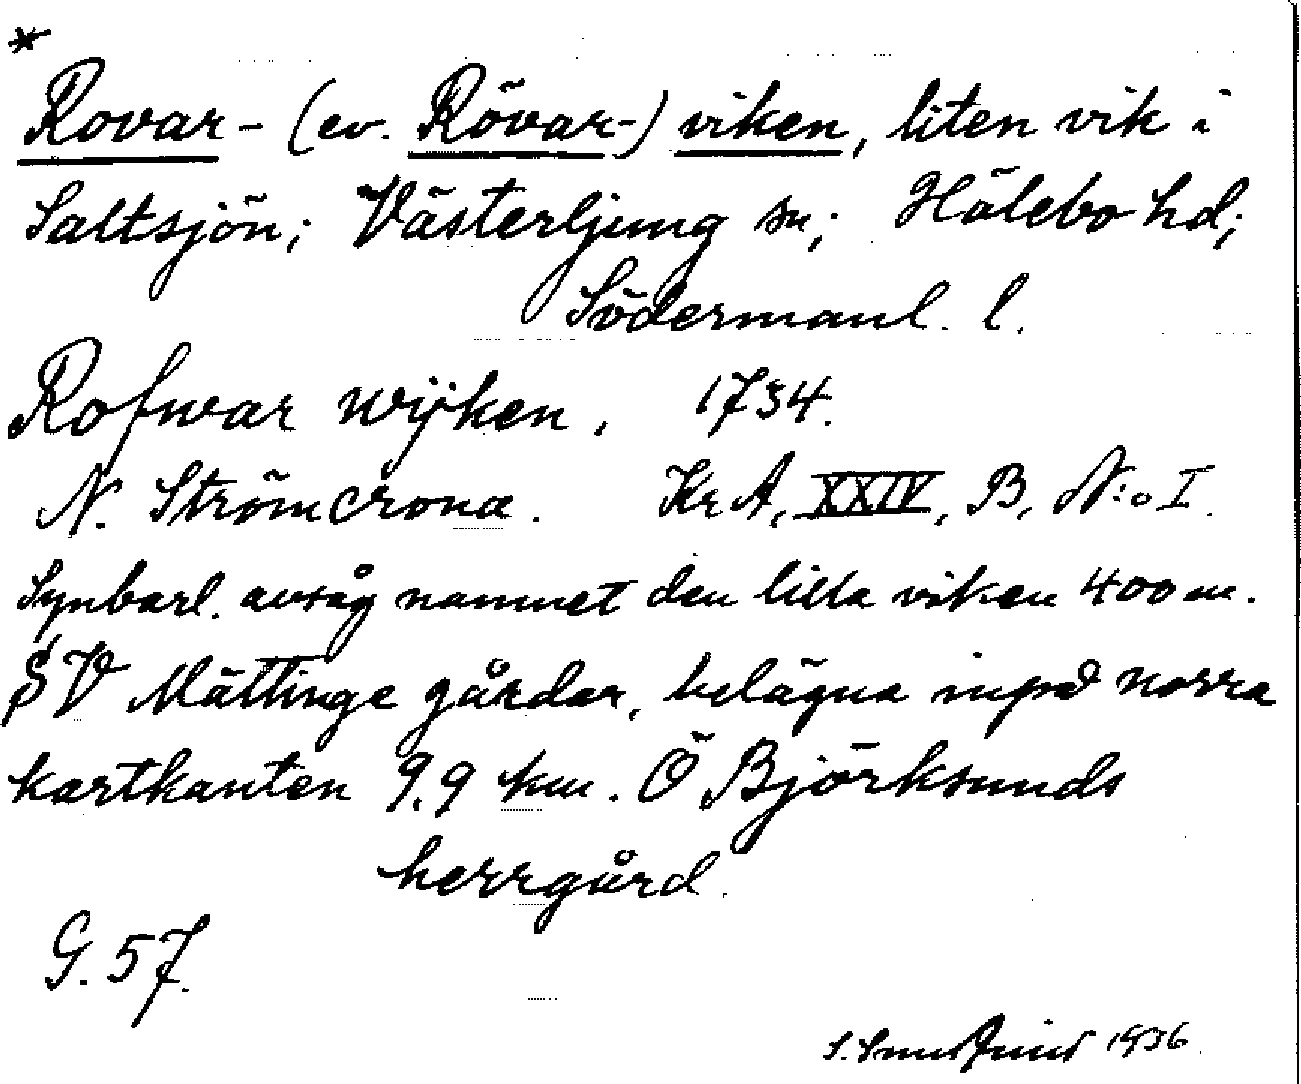 *
Rovar- (ev. Rövar-) viken, liten vik i
Saltsjön; Västerljung sn; Hölebo hd;
Södermanl. l.
Rofwar wijken. 1734.
N. Strömcrona. KrA, XXIV, B, N:o I.
Synbarl. avsåg namnet den lilla viken 400 m.
SV Mättinge gårdar, belägna inpå norra
kartkanten 9.9 km. Ö Björksunds
herrgård.
G. 57.
1936